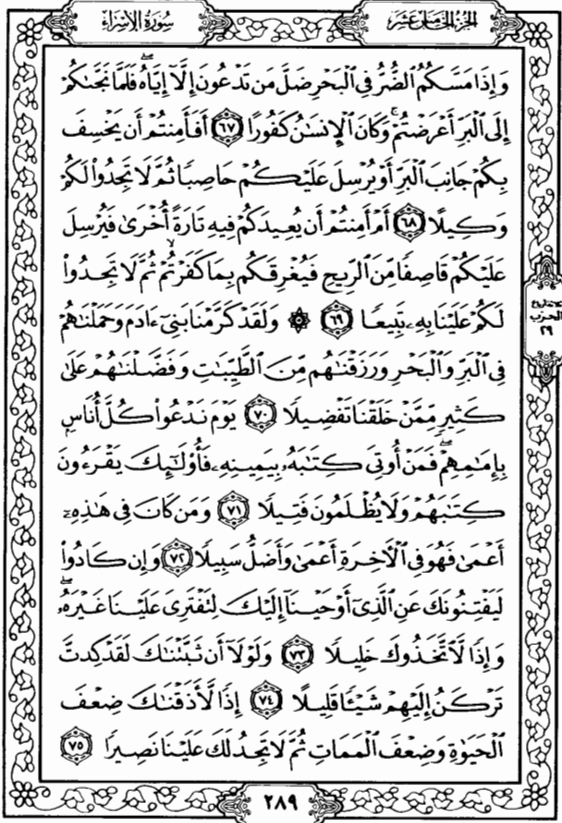 سُورَةُ الإِسْرَاءِ
الجُزْءُ الخَامِسَ عَشَرَ
وَإِذَا مَسَّكُمُ ٱلضُّرُّ فِى ٱلْبَحْرِ ضَلَّ مَن تَدْعُونَ إِلَّآ إِيَّاهُ ۖ فَلَمَّا نَجَّىٰكُمْ
إِلَى ٱلْبَرِّ أَعْرَضْتُمْ ۚ وَكَانَ ٱلْإِنسَـٰنُ كَفُورًا ٦٧ أَفَأَمِنتُمْ أَن يَخْسِفَ
بِكُمْ جَانِبَ ٱلْبَرِّ أَوْ يُرْسِلَ عَلَيْكُمْ حَاصِبًا ثُمَّ لَا تَجِدُوا۟ لَكُمْ
وَكِيلًا ٦٨ أَمْ أَمِنتُمْ أَن يُعِيدَكُمْ فِيهِ تَارَةً أُخْرَىٰ فَيُرْسِلَ
عَلَيْكُمْ قَاصِفًا مِّنَ ٱلرِّيحِ فَيُغْرِقَكُم بِمَا كَفَرْتُمْ ۙ ثُمَّ لَا تَجِدُوا۟
لَكُمْ عَلَيْنَا بِهِۦ تَبِيعًا ٦٩ ۞ وَلَقَدْ كَرَّمْنَا بَنِىٓ ءَادَمَ وَحَمَلْنَـٰهُمْ
فِى ٱلْبَرِّ وَٱلْبَحْرِ وَرَزَقْنَـٰهُم مِّنَ ٱلطَّيِّبَـٰتِ وَفَضَّلْنَـٰهُمْ عَلَىٰ
كَثِيرٍ مِّمَّنْ خَلَقْنَا تَفْضِيلًا ٧٠ يَوْمَ نَدْعُوا۟ كُلَّ أُنَاسٍۭ
بِإِمَـٰمِهِمْ ۖ فَمَنْ أُوتِىَ كِتَـٰبَهُۥ بِيَمِينِهِۦ فَأُو۟لَـٰٓئِكَ يَقْرَءُونَ
كِتَـٰبَهُمْ وَلَا يُظْلَمُونَ فَتِيلًا ٧١ وَمَن كَانَ فِى هَـٰذِهِۦٓ
أَعْمَىٰ فَهُوَ فِى ٱلْـَٔاخِرَةِ أَعْمَىٰ وَأَضَلُّ سَبِيلًا ٧٢ وَإِن كَادُوا۟
لَيَفْتِنُونَكَ عَنِ ٱلَّذِىٓ أَوْحَيْنَآ إِلَيْكَ لِتَفْتَرِىَ عَلَيْنَا غَيْرَهُۥ ۖ
وَإِذًا لَّٱتَّخَذُوكَ خَلِيلًا ٧٣ وَلَوْلَآ أَن ثَبَّتْنَـٰكَ لَقَدْ كِدتَّ
تَرْكَنُ إِلَيْهِمْ شَيْـًٔا قَلِيلًا ٧٤ إِذًا لَّأَذَقْنَـٰكَ ضِعْفَ
ٱلْحَيَوٰةِ وَضِعْفَ ٱلْمَمَاتِ ثُمَّ لَا تَجِدُ لَكَ عَلَيْنَا نَصِيرًا ٧٥
ثلاثة أرباع
الحزب
٢٩
٢٨٩